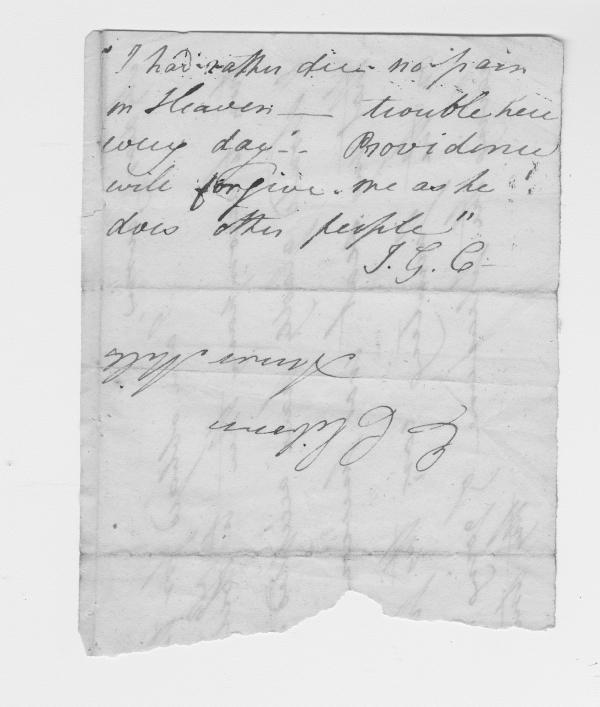 "I had rather die - no pain
in Heaven — trouble here
every day" - Providence
will forgive me as he
does other people"
J. G. C